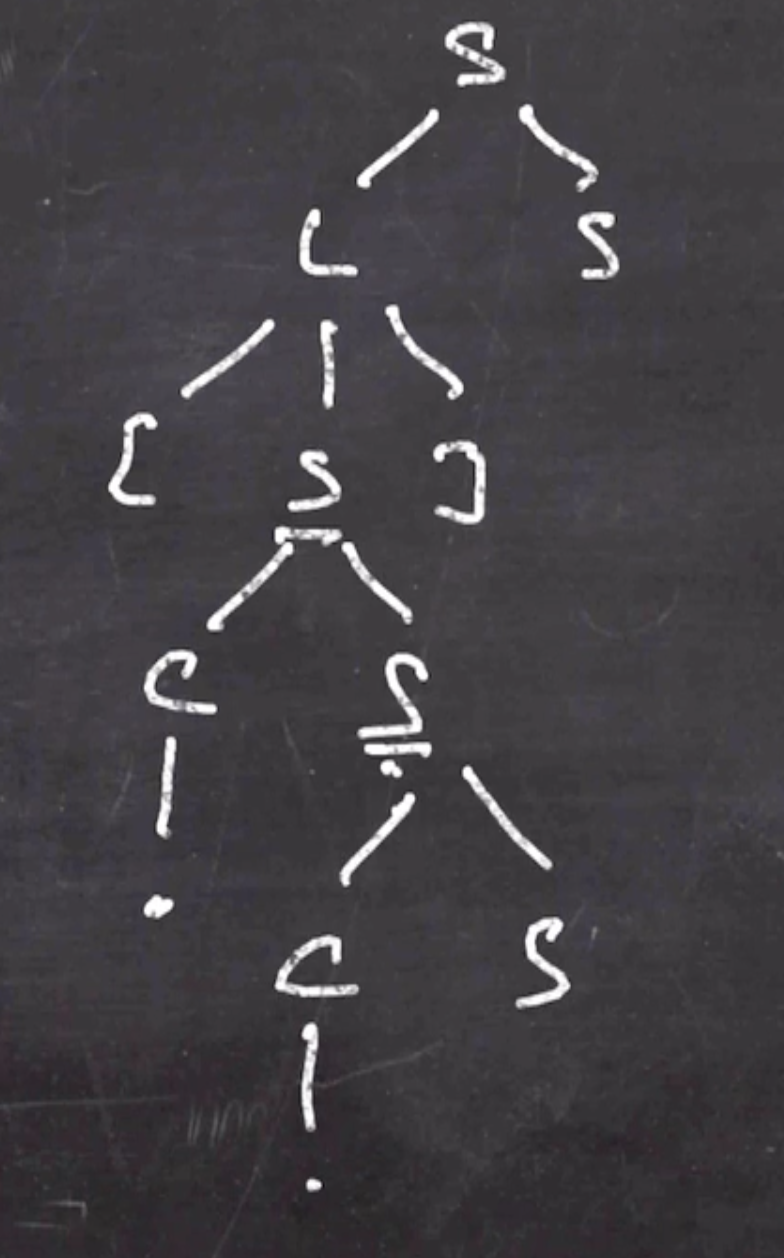 S
C S
[ S ]
C S
.
C S
.